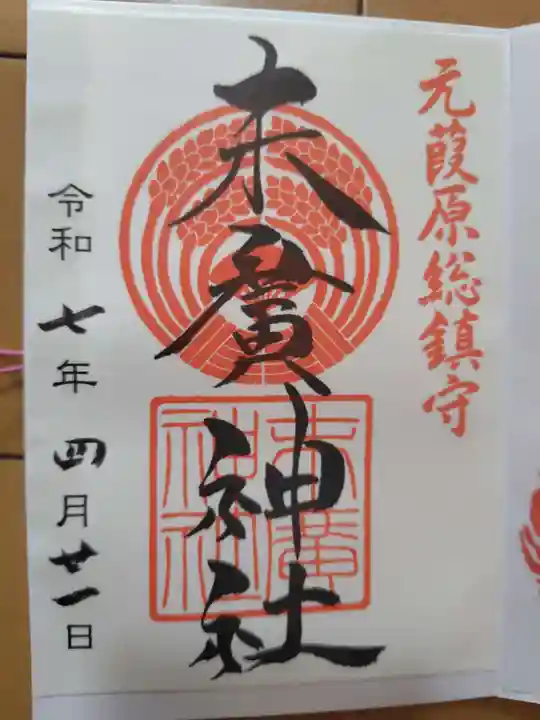 元葭原総鎮守
末廣神社
末廣
神社
令和七年四月廿一日